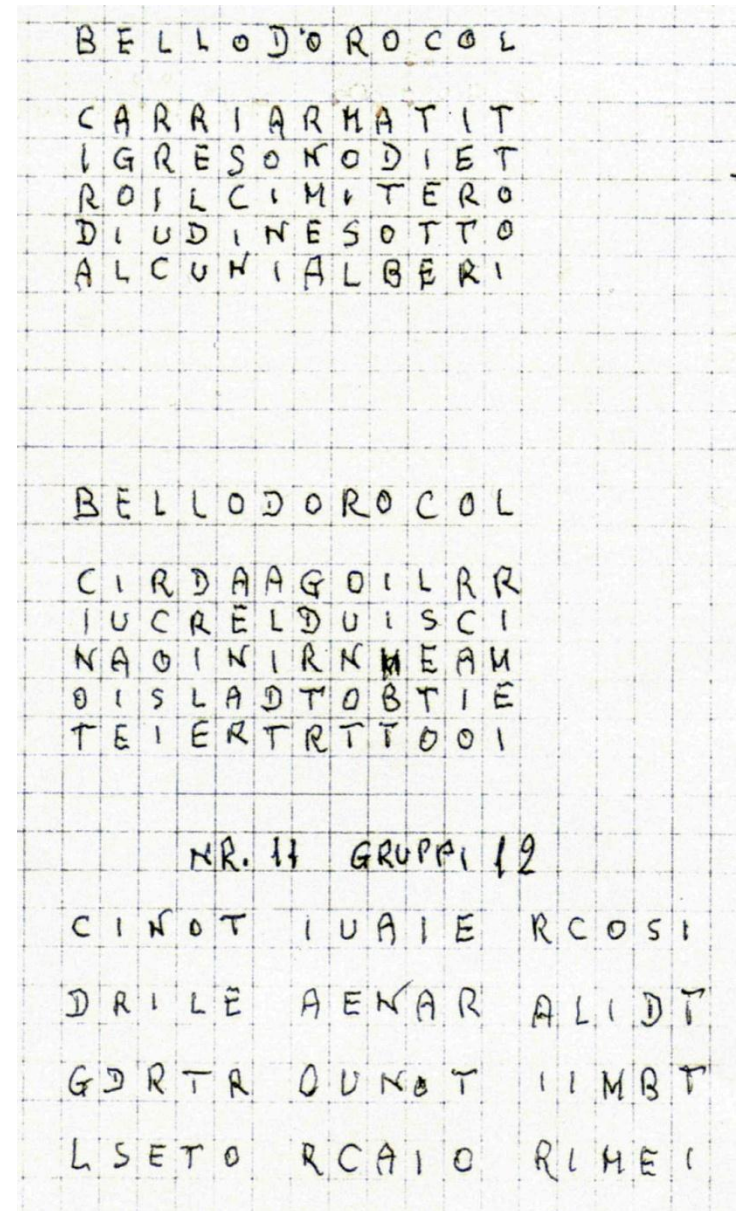 B E L L O D'O R O C O L
C A R R I A R M A T I T
I G R E S O N O D I E T
R O I L C I M I T E R O
D I U D I N E S O T T O
A L C U N I A L B E R I
B E L L O D O R O C O L
C I R D A A G O I L R R
I U C R E L D U I S C I
N A O I N I R N M E A M
O I S L A D T O B T I E
T E I E R T R T T O O I
NR. 11 GRUPPI 12
C I N O T I U A I E R C O S I
D R I L E A E N A R A L I D T
G D R T R O U N O T I I M B T
L S E T O R C A I O R I M E I